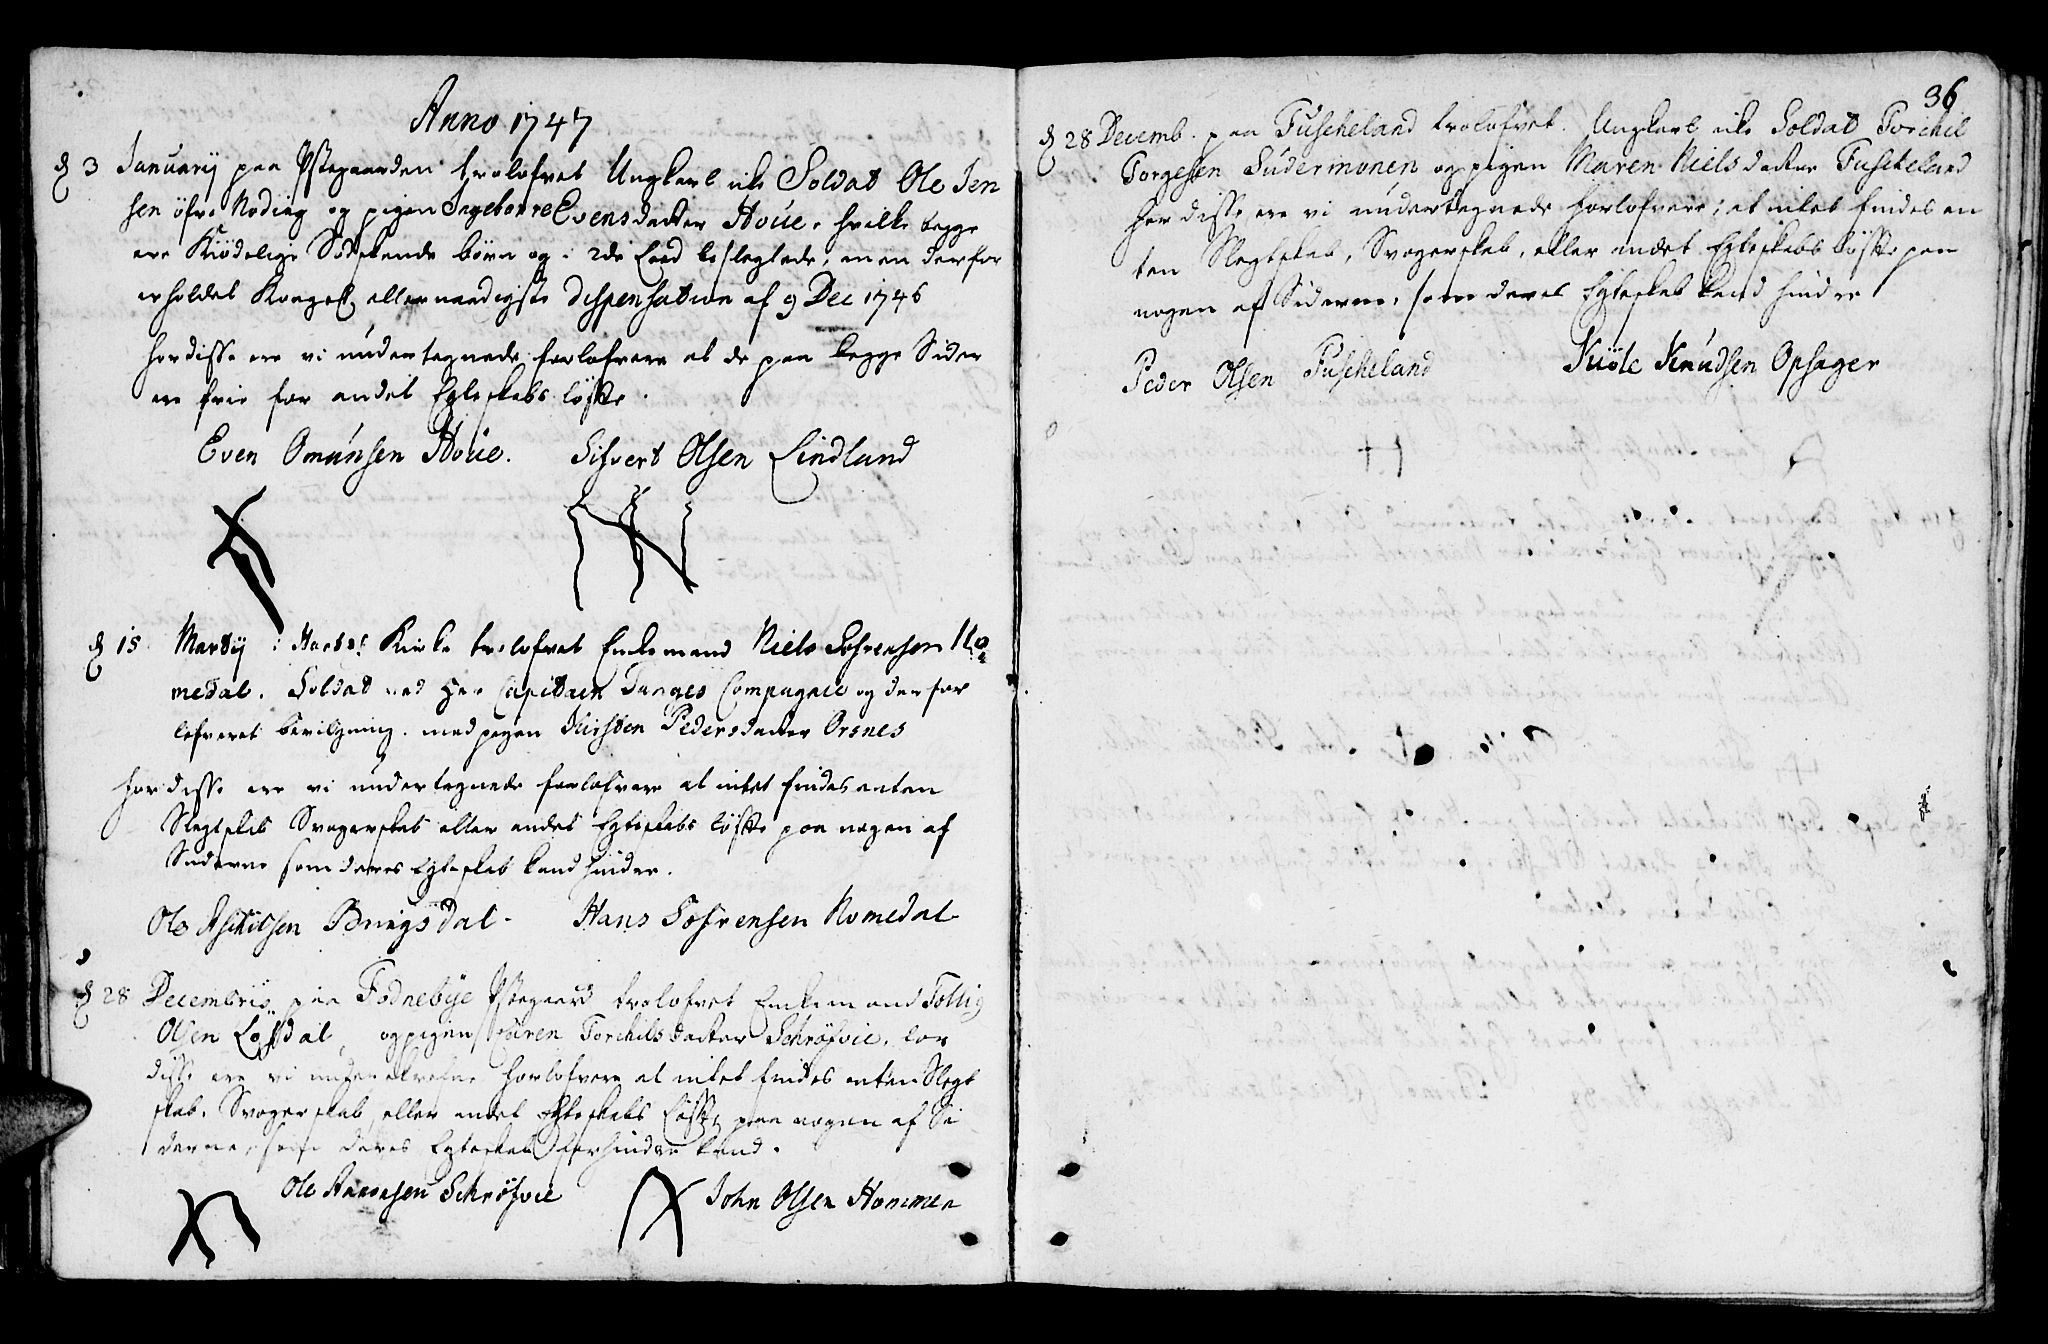 Anno 1747
d 3 Januarij paa Ystegaarden trolofvet Ungkarl Soldat Ole Jen
sen öfre Röding og pigen Ingeborre Evensdatter Hoüe, hvilke begge
ere Kiödelige Södskende börn og i 2de Leed beslegtede, men derfor
erholdet Kongel. allernaadigste Dispensation af 9 Dec 1746
for disse ere vi undertegnede forlofvere at de paa begge Sider
ere frie for andet Egteskabs löfte.
Even Omünsen Hoüe. Sifvert Olsen Lindland
d 15 Martij i Kirke trolofvet Enkemand Niels Sofrensen Ro
medal. Soldat ved Her Capitain Tanges Compagnie og der for
lefveret bevilgning. med pigen Kirsten Pedersdatter Orsnes
for disse ere vi undertegnede forlofvere at intet findes enten
Slegtskab Svogerskab eller andet Egteskabs löfte paa nogen af
Siderne som deres Egteskab kand hindre.
Ole Aschilsen Bringsdal. Hans Sofrensen Romedal
d 28 Decembris paa Fodnebye Ystegaard trolofvet Enkemand Tollig
Olsen Lofsdal, og pigen Karen Torchilsdatter Schröfvie, for
disse ere vi forlofvere at intet findes enten Slegt
skab, Svogerskab, eller andet Egteskabs Löfte, paa nogen af Si
derne, som deres Egteskab forhindre kand.
Ole Aanensen Schröfvie John Olsen Hommen
36
d 28 Decemb. paa Fuscheland trolofvet. Ungkarl Soldat Torchil
Torgesen Südermonen og pigen Maren Nielsdatter Fuscheland
for disse ere vi undertegnede forlofvere; at intet findes en
ten Slegtskab, Svogerskab, eller andet Egteskabs löfte paa
nogen af Siderne, som deres Egteskab kand hindre
Peder Olsen Fuscheland Knudsen Opsager